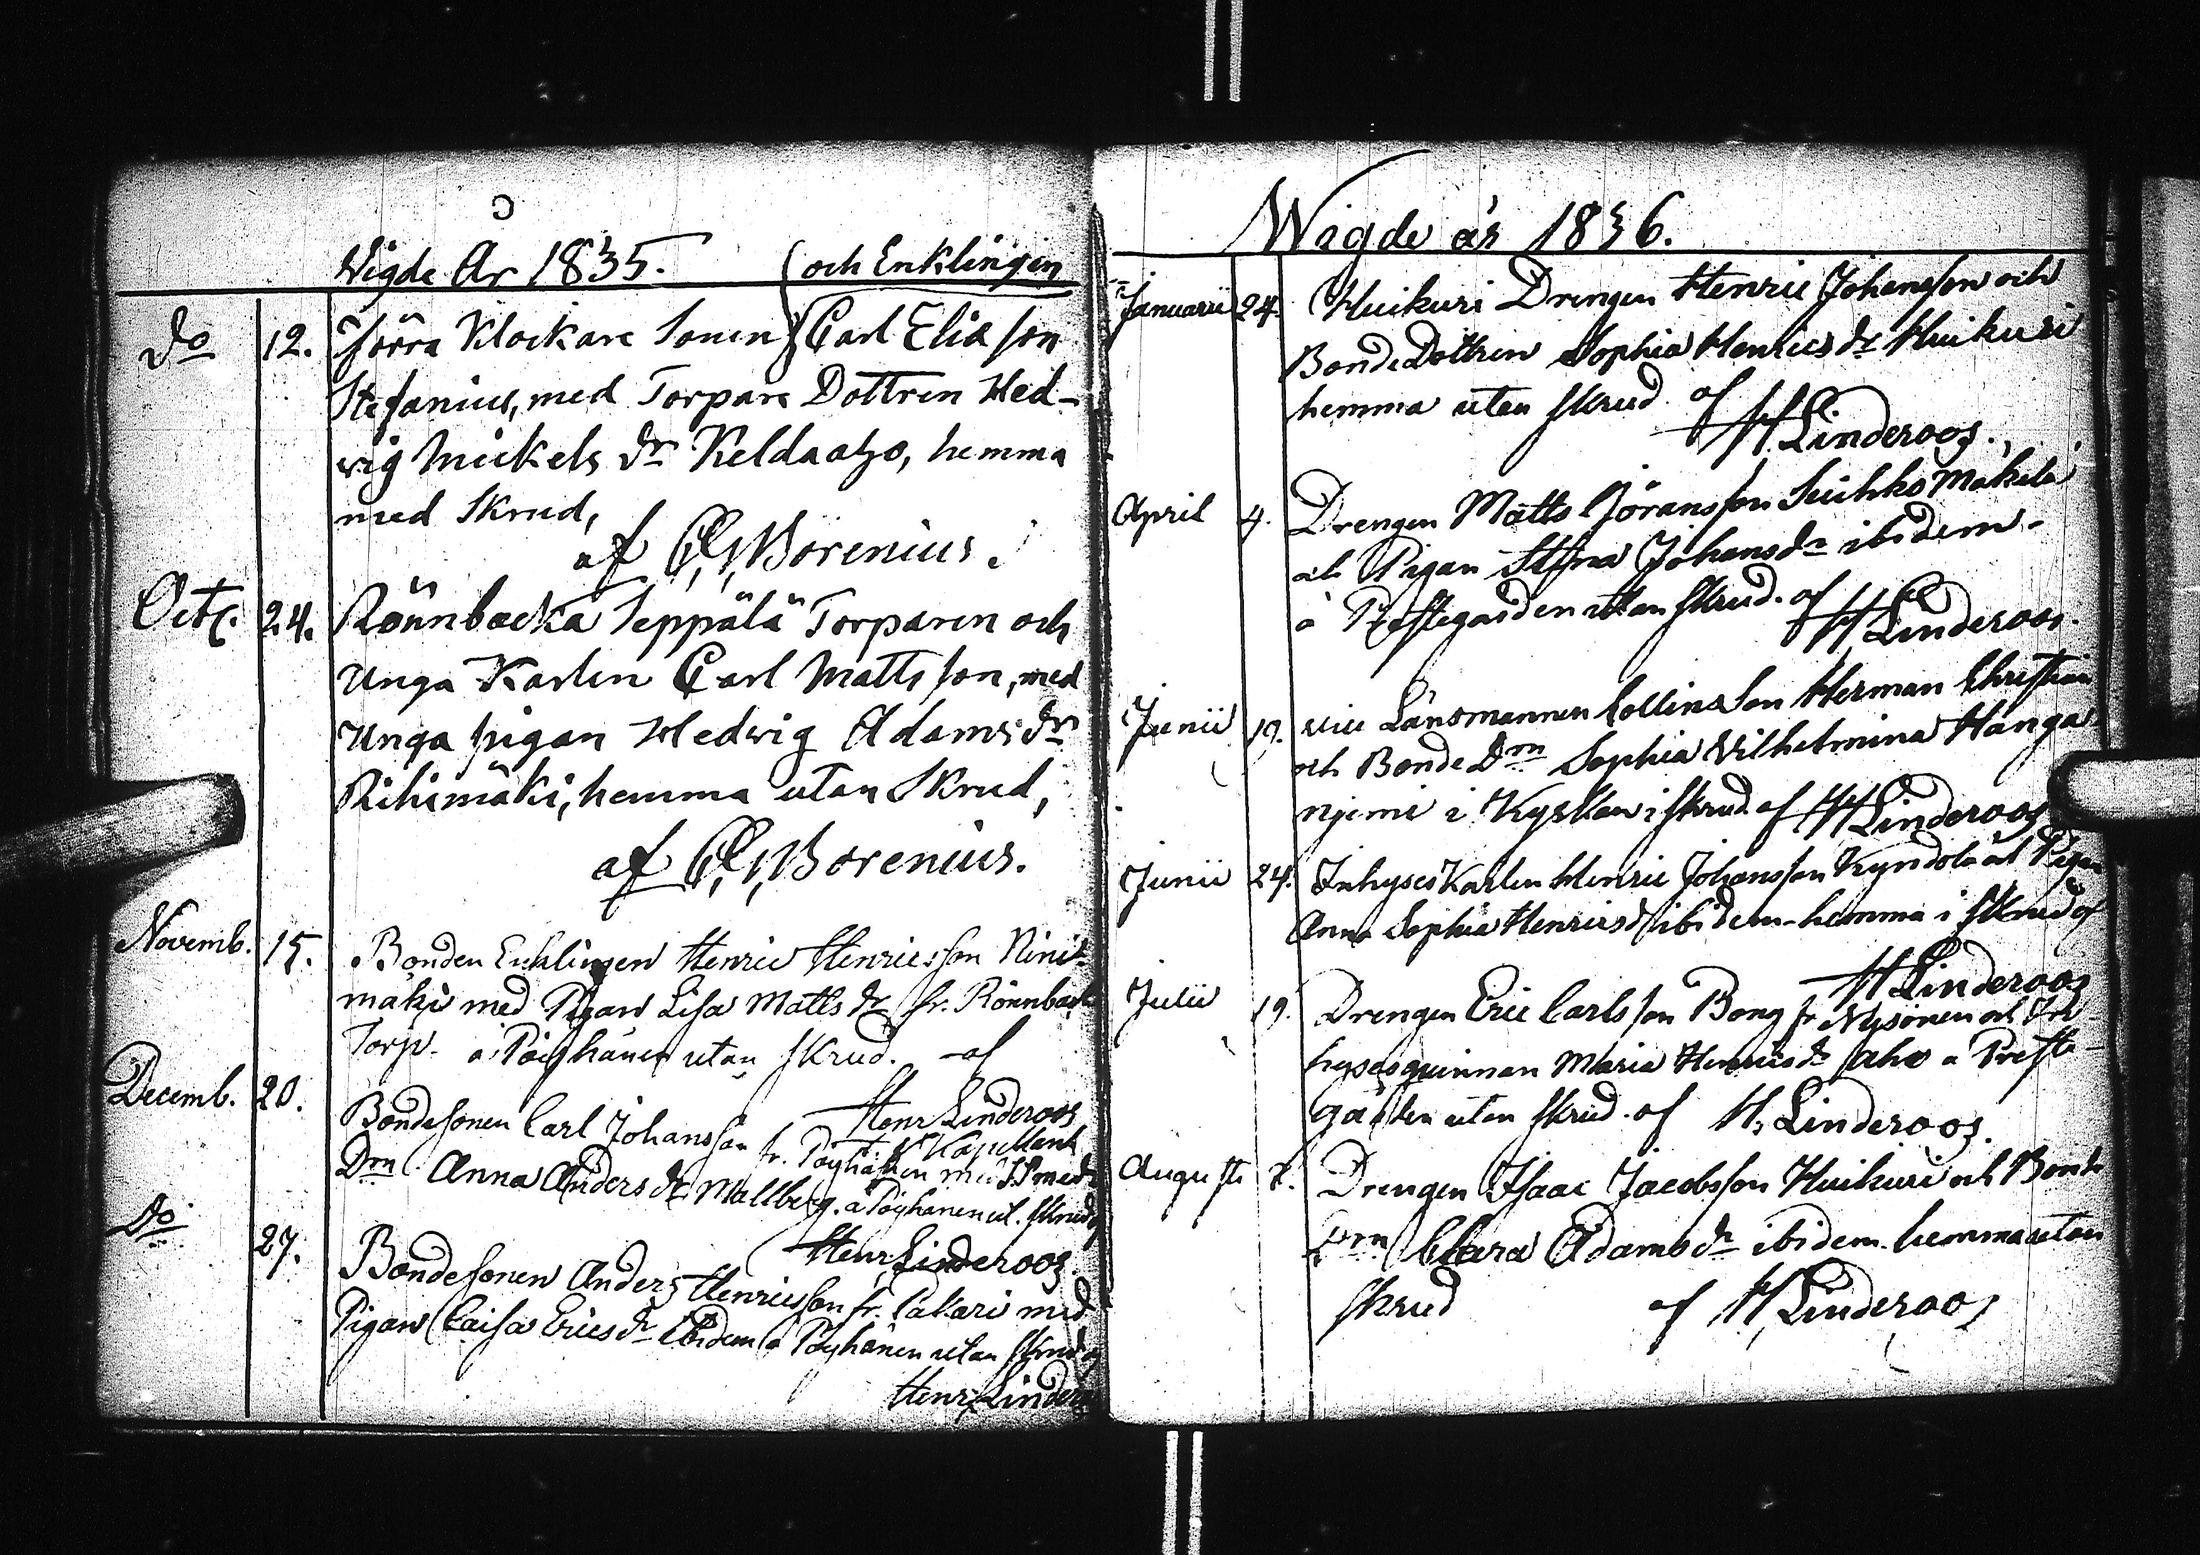 Wigde År 1835. (och Enklingen
Do 12. Förra Klockare Sonen Carl Eliæ son
Stefanius, med Torpare Dottren Hed-
vig Mickels dr Keldaaho, hemma
med Skrud,
af C. G. Borenius.
Octb. 24. Rönnbacka Seppälä Torparen och
Unga Karlen Carl Matts son, med
Unga pigan Hedvig Adams dr
Rihimäki, hemma utan Skrud,
af C. G. Borenius.
Novemb. 15. Bonden Enklingen Henric Henricsson Nini-
mäki med Pigan Lisa Matts dr fr. Rönnback
Torp. å Pöyhänen utan skrud. af
Henr Linderoos
Kapellant
Decemb. 20. Bondesonen Carl Johansson fr. Pöyhänen med Smeds
Drn Anna Anders dr Mallberg. å Pöyhänen ut. skrud af
Henr Linderoos.
Do 27. Bondesonen Anders Henricsson fr. Cakari med
Pigan Caisa Erics dr ibidem å Pöyhänen utan skrud af
Henr Linder
Wigde år 1836.
Januarii 24. Huikuri Drengen Henric Johansson och
BondeDottren Sophia Henrics dr Huikuri
hemma utan skrud af
H Linderoos.
April 4. Drengen Matts Göransson Mäkelä
och Pigan Johans dr ibidem
å Prestegården utan skrud. af
H Linderoos.
Junii 19. vice Länsmannen Collin Herman Christian
och Bonde Drn Sophia Vilhelmina Hanga
njemi i Kyrkan i skrud. af H Linderoos
Junii 24. InhysesKarlen Henric Johansson Kyndölä och Pigan
Anna Sophia Henrics dr ibidem hemma i skrud af
H Linderoos
Julii 19. Drengen Eric Carlsson Bong fr Nysönen och In-
hysesquinnan Maria Henrics dr Aho å Preste-
gården utan skrud. af H. Linderoos.
Augusti 7. Drengen Isaac Jacobsson Huikuri och Bonde
Drn Clara Adams dr ibidem hemma utan
skrud af H Linderoos